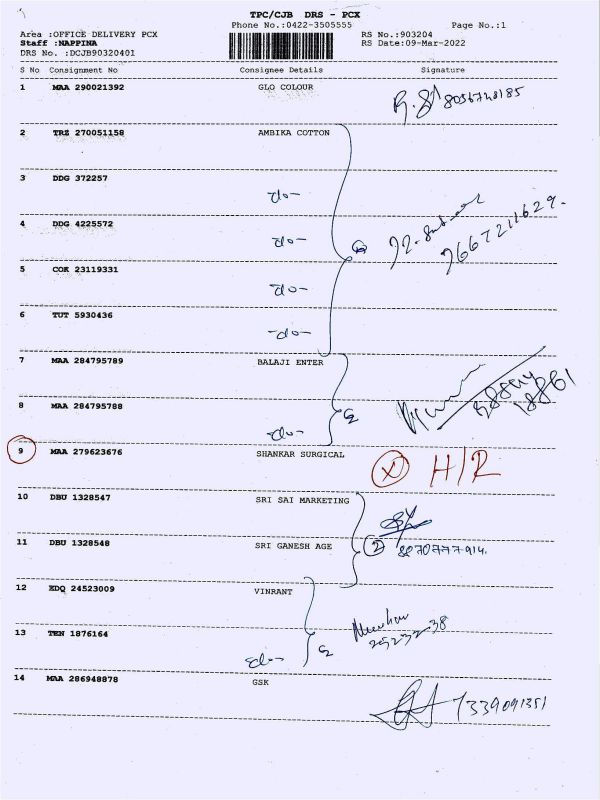 TPC/CJB DRS - PCX
Phone No.:0422-3505555 Page No.:1
Area :OFFICE DELIVERY PCX RS No.:903204
Staff :NAPPINA RS Date:09-Mar-2022
DRS No. :DCJB90320401
S No Consignment No Consignee Details Signature
1 MAA 290021392 GLO COLOUR 8056728185
2 TRZ 270051158 AMBIKA COTTON
3 DDG 372257 -do-
4 DDG 4225572 -do- 9667211629.
5 COK 23119331 -do-
6 TUT 5930436 -do-
7 MAA 284795789 BALAJI ENTER
8 MAA 284795788 -do-
9 MAA 279623676 SHANKAR SURGICAL X H/R
10 DBU 1328547 SRI SAI MARKETING
11 DBU 1328548 SRI GANESH AGE 2 8070777914.
12 EDQ 24523009 VINRANT
13 TEN 1876164 -do-
14 MAA 286948878 GSK 7339091351